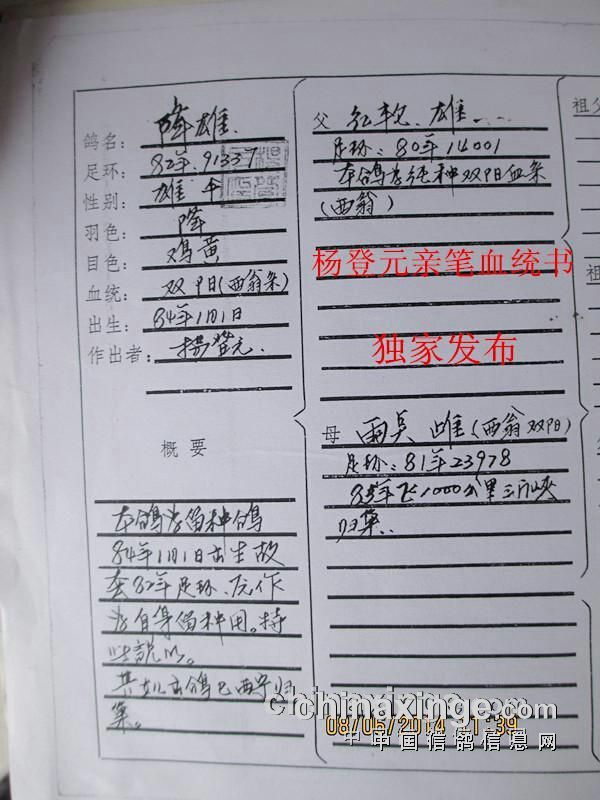 鸽名: 降雄.
足环: 82年.91337
性别: 雄
羽色: 降
目色: 鸡黄
血统: 双阳(西翁系)
出生: 84年1月1日
作出者: 杨登元.
概要
本鸽为留种鸽
84年1月1日出生故
套82年足环、应作
为自身留种用。特
此說明.
其
鸽已西宁归
巢。
父 雄
足环: 80年14001
本鸽为纯种双阳血系
(西翁)
杨登元亲笔血统书
独家发布
母 雨点 雌(西翁双阳)
足环: 81年23978
83年飞1000公里三门峡
归巢.
祖父
祖
chinaxinge.com
08/05/2014 11:39
中国信鸽信息网